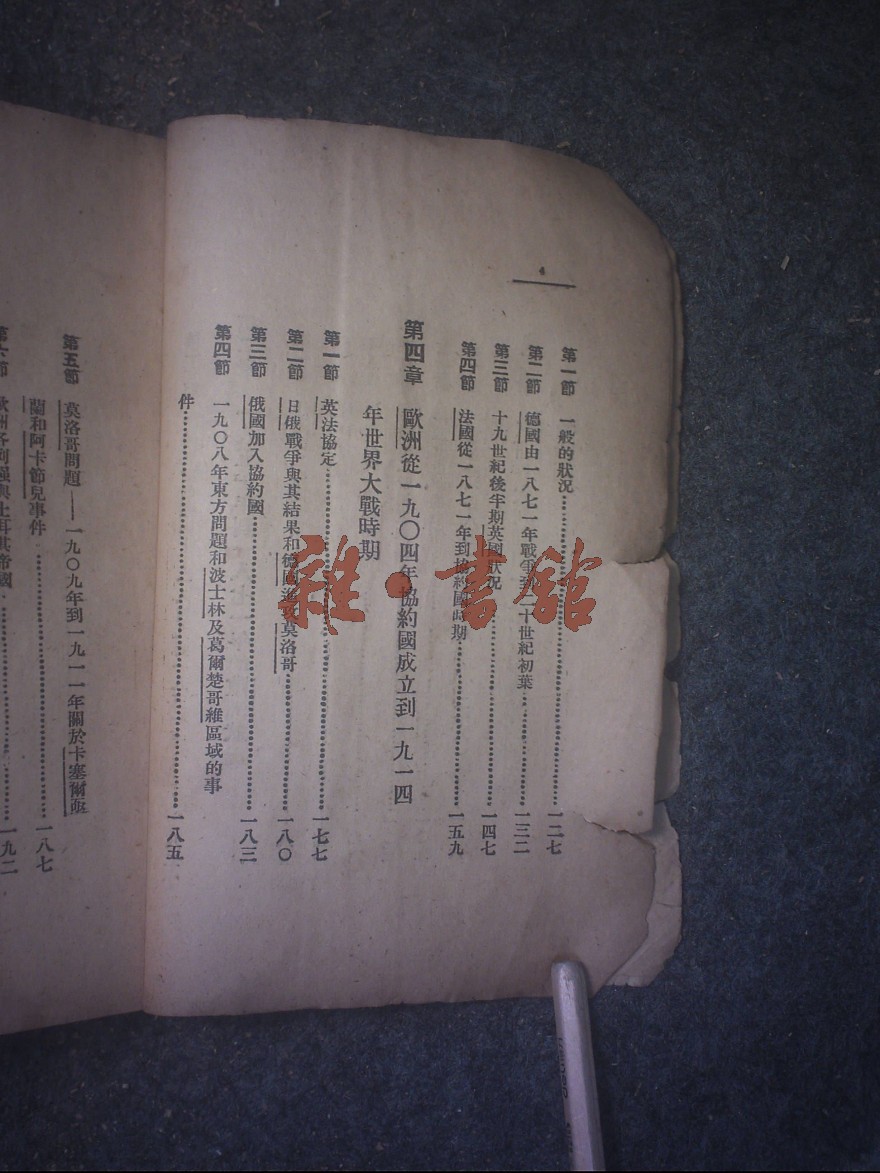 4
第一節 一般的狀況……一二七
第二節 德國由一八七一年戰爭到二十世紀初葉……一三二
第三節 十九世紀後半期英國狀況……一四七
第四節 法國從一八七一年到協約國時期……一五九
第四章 歐洲從一九〇四年協約國成立到一九一四
年世界大戰時期
第一節 英法協定……一七七
第二節 日俄戰爭與其結果和德國進攻莫洛哥……一八〇
第三節 俄國加入協約國……一八三
第四節 一九〇八年東方問題和波士林及葛爾楚哥維區域的事
件……一八五
第五節 莫洛哥問題——一九〇九年到一九一一年關於卡塞爾
蘭和阿卡節兒事件……一八七
第六節 歐洲各列强與土耳其帝國……一九二
雜·書館